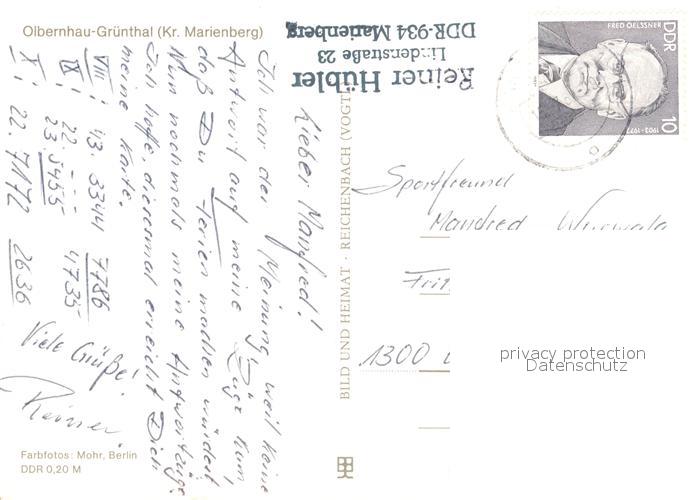 Olbernhau-Grünthal (Kr. Marienberg)
Lieber Manfred!
Ich war der Meinung, weil keine
Antwort auf meine Züge kam,
daß Du Ferien machen würdest
Nun nochmals meine Antwortzüge.
Ich hoffe, diesesmal erreicht Dich
meine Karte.
VIII: 43. 3344 7786
IX: 22. - - -
23. 5455 4735
X: 22. 7172 2636
Viele Grüße!
Reiner.
Farbfotos: Mohr, Berlin
DDR 0,20 M
BILD UND HEIMAT · REICHENBACH (VOGT
Reiner Hübler
Lindenstraße 23
DDR-934 Marienberg
FRED OELSSNER
DDR
10
1903-1977
Sportfreund
Manfred
Fritz
1300
privacy protection
Datenschutz